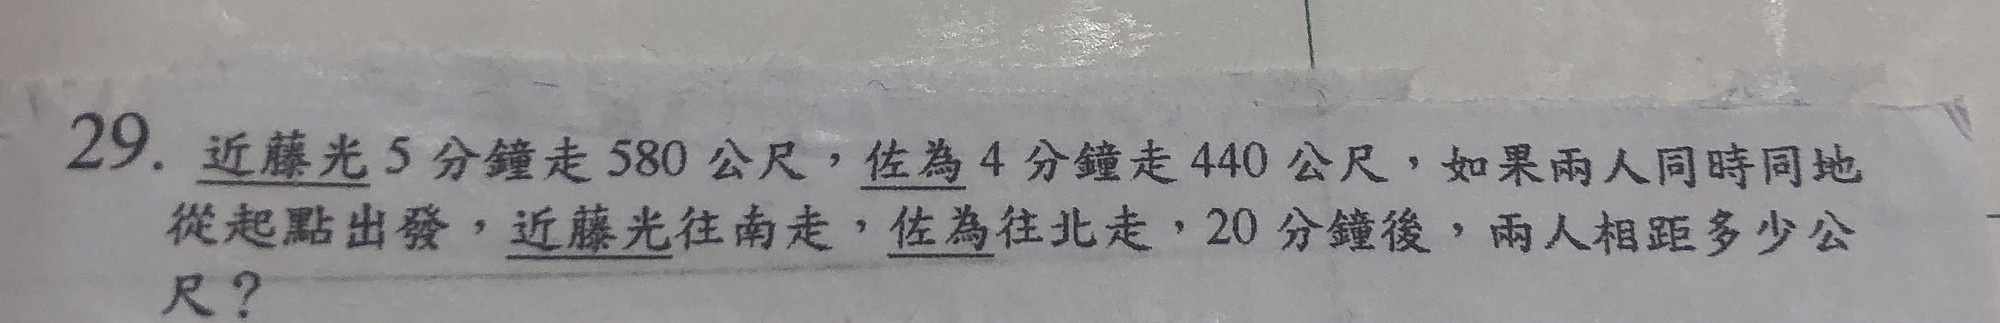 29. 近藤光 5 分鐘走 580 公尺，佐為 4 分鐘走 440 公尺，如果兩人同時同地
從起點出發，近藤光往南走，佐為往北走，20 分鐘後，兩人相距多少公
尺？